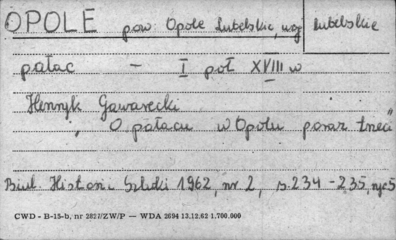 OPOLE pow. Opole Lubelskie, woj lubelskie
pałac — I poł XVIII w
Henryk Gawarecki
"O pałacu w Opolu poraz trzeci"
Biul. Historii Sztuki 1962, nr 2, s. 234 - 235, ryc 5
CWD - B-15-b, nr 2817/ZW/P — WDA 2694 13.12.62 1.700.000